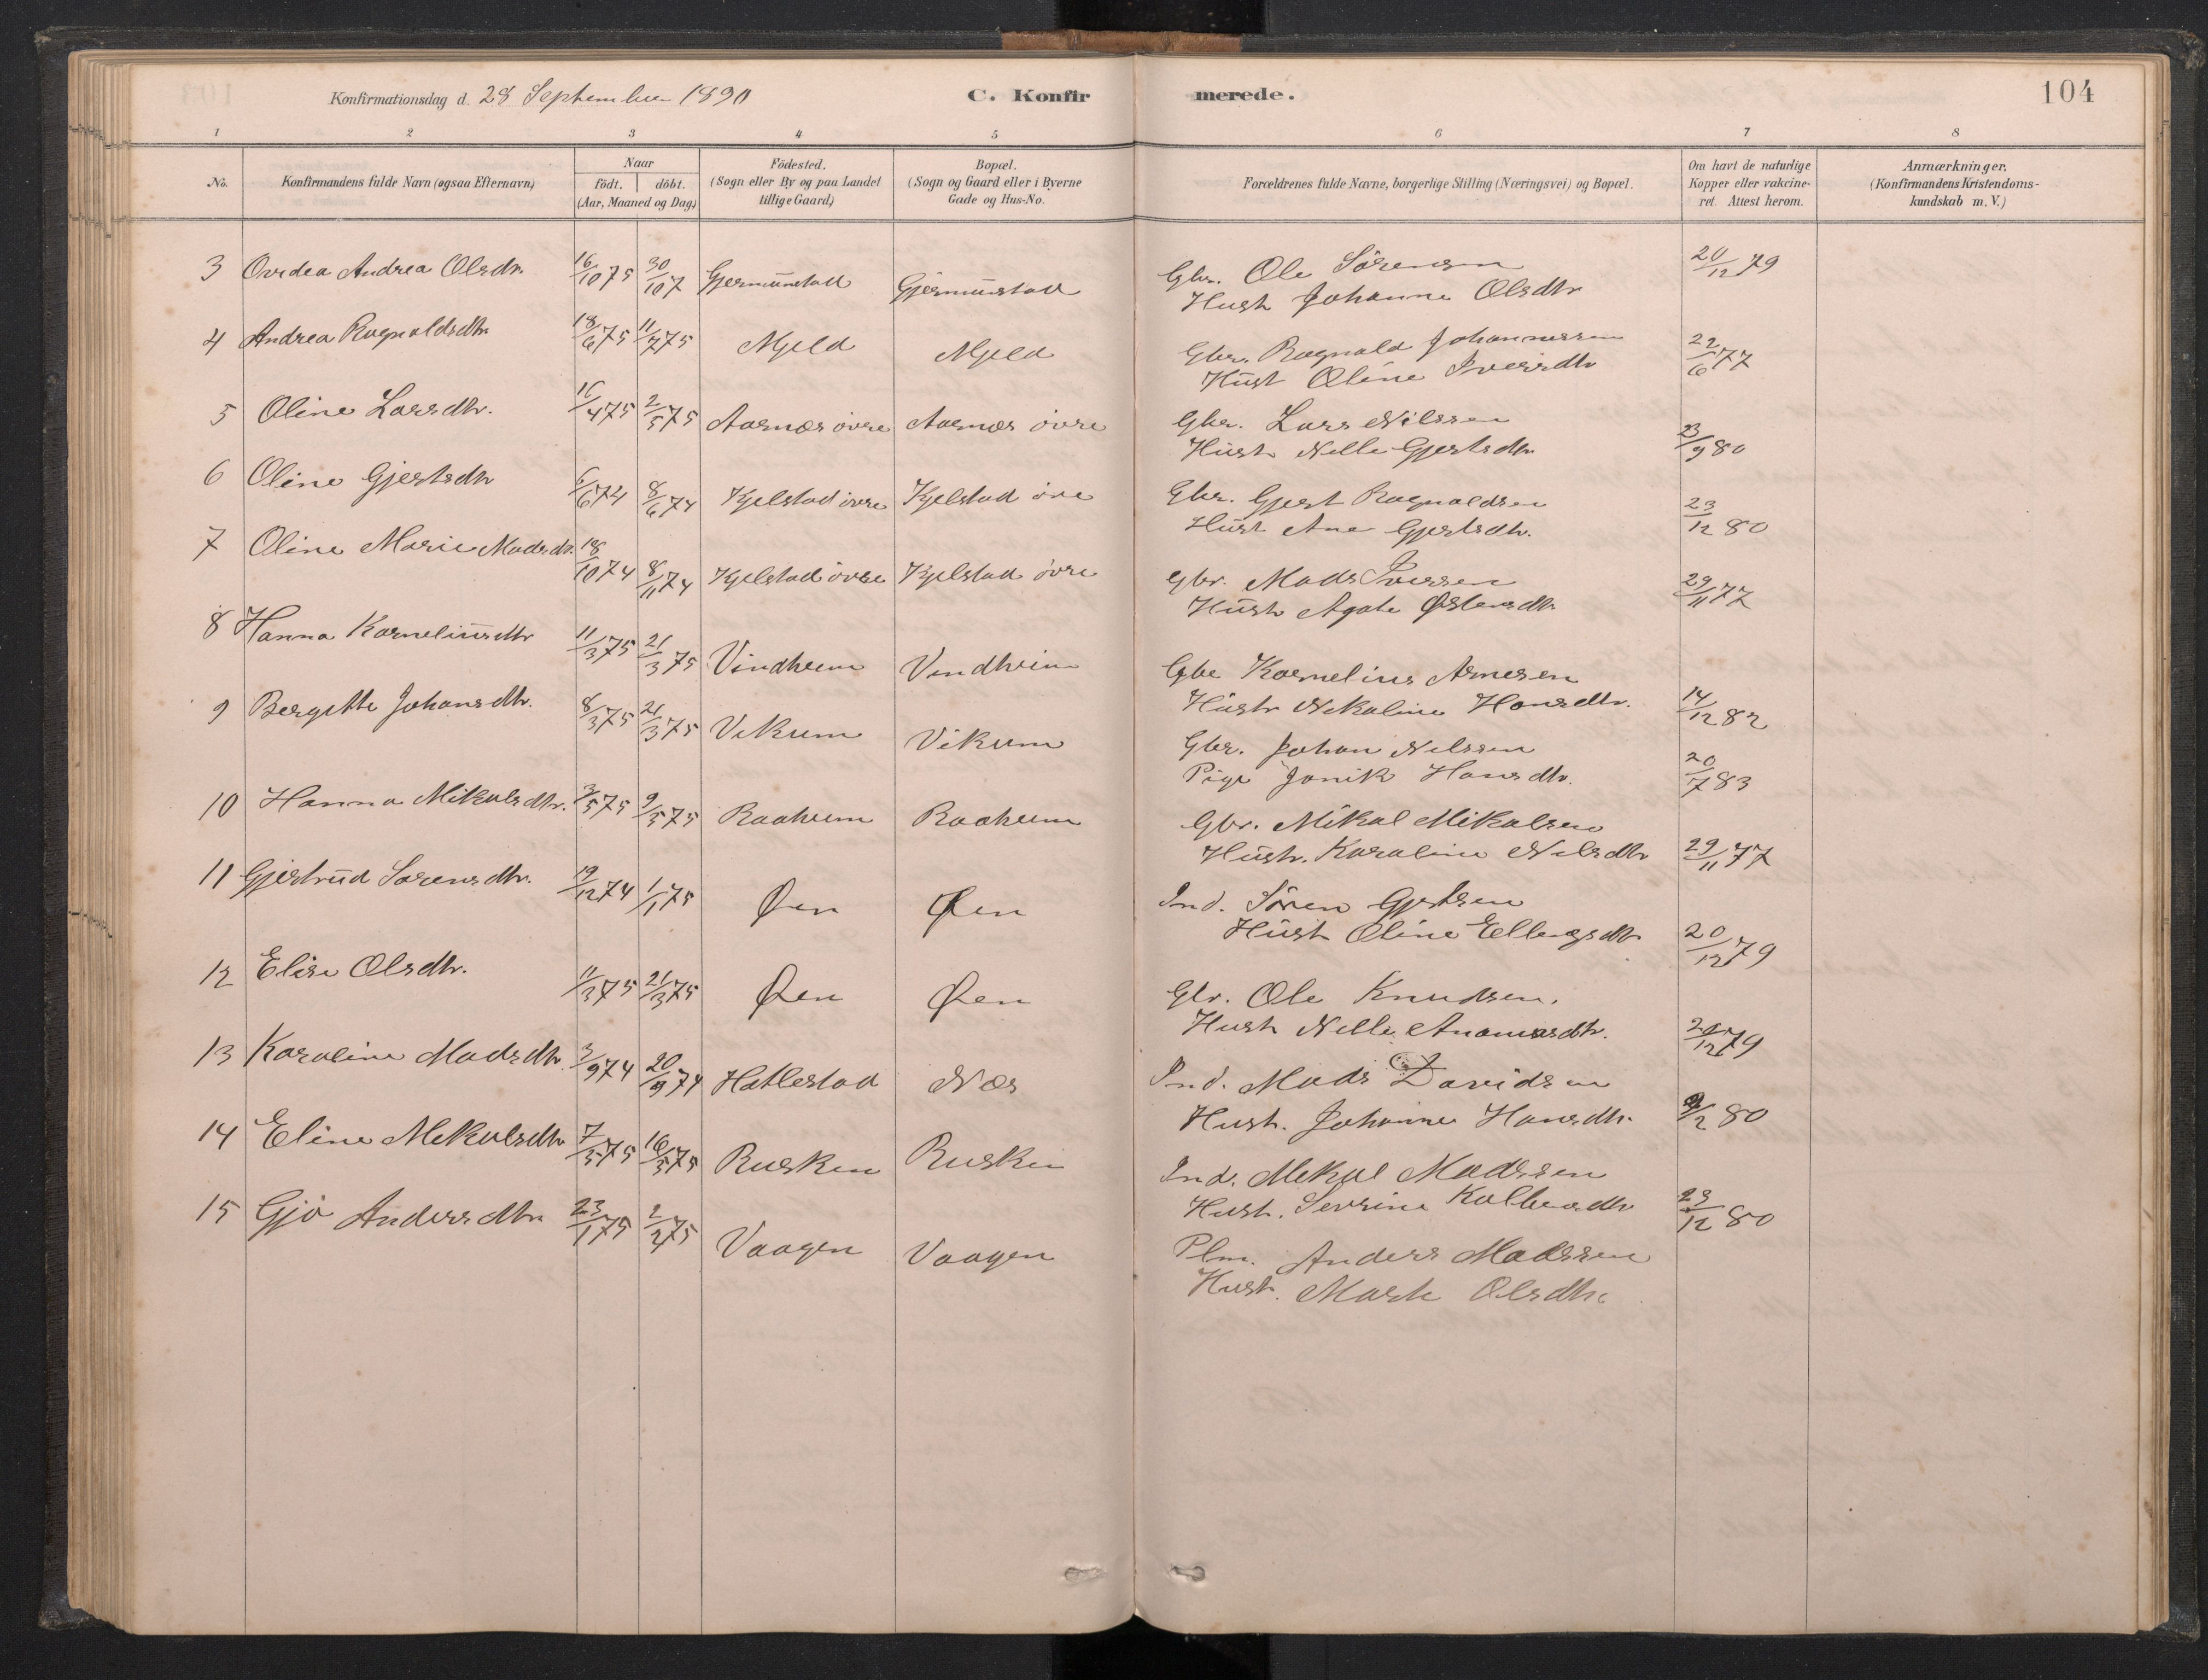 Konfirmationsdag d. 28 September 1890 C. Konfirmerede. 104
1 2 3 4 5 6 7 8
No. Konfirmandens fulde Navn (ogsaa Efternavn) Naar födt. döbt. (Aar, Maaned og Dag.) Födested. (Sogn eller By og paa Landet tillige Gaard) Bopæl. (Sogn og Gaard eller i Byerne Gade og Hus-No. Forældrenes fulde Navne, borgerlige Stilling (Næringsvei) og Bopæl. Om havt de naturlige Kopper eller vakcineret. Attest herom. Anmærkninger, (Konfirmandens Kristendomskundskab m.V.)
3 Ovidea Andrea Olsdr. 16/10 75 30/10 7 Gjermunstad Gjermunstad Gbr. Ole Sörensen 20/12 79
Hust Johanne Olsdtr
4 Andrea Ragnaldsdtr. 18/6 75 11/7 75 Mjeld Mjeld Gbr. Ragnald Johannessen 22/6 77
Hust Oline Iversdtr
5 Oline Larsdtr. 16/4 75 2/5 75 Aarnæs övre Aarnæs övre Gbr. Lars Nilssen 23/9 80
Hust Nelle Gjertsdtr.
6 Oline Gjertsdtr 6/6 74 8/6 74 Kjelstad övre Kjelstad öve Gbr. Gjert Ragnaldsen 23/12 80
Hust Ane Gjertsdtr.
7 Oline Marie Madsdtr. 18/10 74 8/11 74 Kjelstad övre Kjelstad övre Gbr. Mads Iversen 29/11 77
Hust Agate Østensdtr
8 Hanna Kornelius dtr 11/3 75 21/3 75 Vindheim Vindheim Gbr Kornelius Arnesen 14/12 82
Hustr Nikoline Hansdtr.
9 Bergitte Johansdtr. 8/3 75 21/3 75 Vikum Vikum Gbr. Johan Nilssen 20/7 83
Pige Janik Hansdtr.
10 Hanna Mikalsdtr. 3/5 75 9/5 75 Raaheim Raaheim Gbr. Mikal Mikalsen 29/11 77
Hustr. Karoline Nilsdtr
11 Gjertrud Sorensdtr. 19/12 74 1/1 75 Øen Øen Ind. Sören Gjertsen 20/12 79
Hust Oline Ellingsdtr
12 Elise Olsdtr. 11/3 75 21/3 75 Øen Øen Gbr. Ole Knudsen. 20/12 79
Hust Nelle
13 Karoline Madsdtr. 3/9 74 20/9 74 Hatlestad Næs Ind. Mads Davidsen 80
Hust. Johanne Hansdtr.
14 Eline Mikalsdtr 7/5 75 16/5 75 Rusken Rusken Ind. Mikal Madssen 23/12 80
Hust. Serine
15 Gjö Andersdtr. 23/1 75 2/2 75 Vaagen Vaagen Plm. Anders Madssen
Hust. Marte Olsdtr.